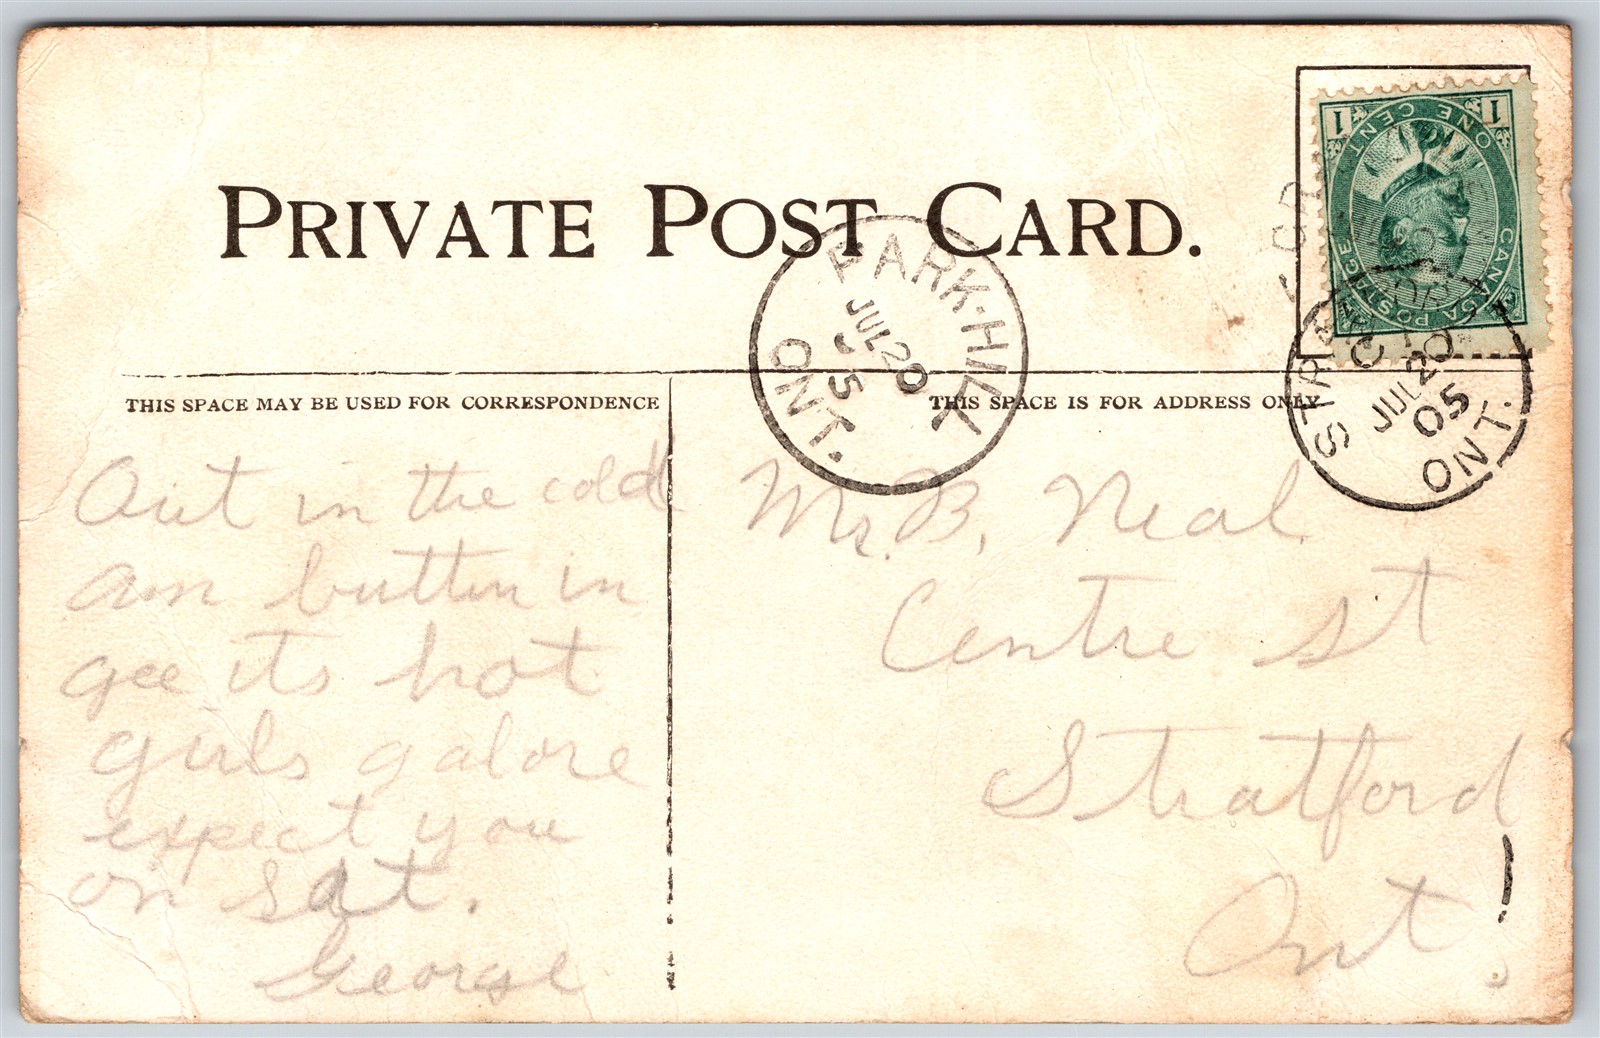 PRIVATE POST CARD.
1 ONE CENT 1
CANADA POSTAGE
PARK-HILL
JUL 20
05
ONT.
STRATFORD
JUL 20
05
ONT.
THIS SPACE MAY BE USED FOR CORRESPONDENCE
THIS SPACE IS FOR ADDRESS ONLY
Out in the cold
am button in
gee its hot
girls galore
expect you
on Sat.
George
Mr. B. Neal
Centre St
Stratford
Ont.